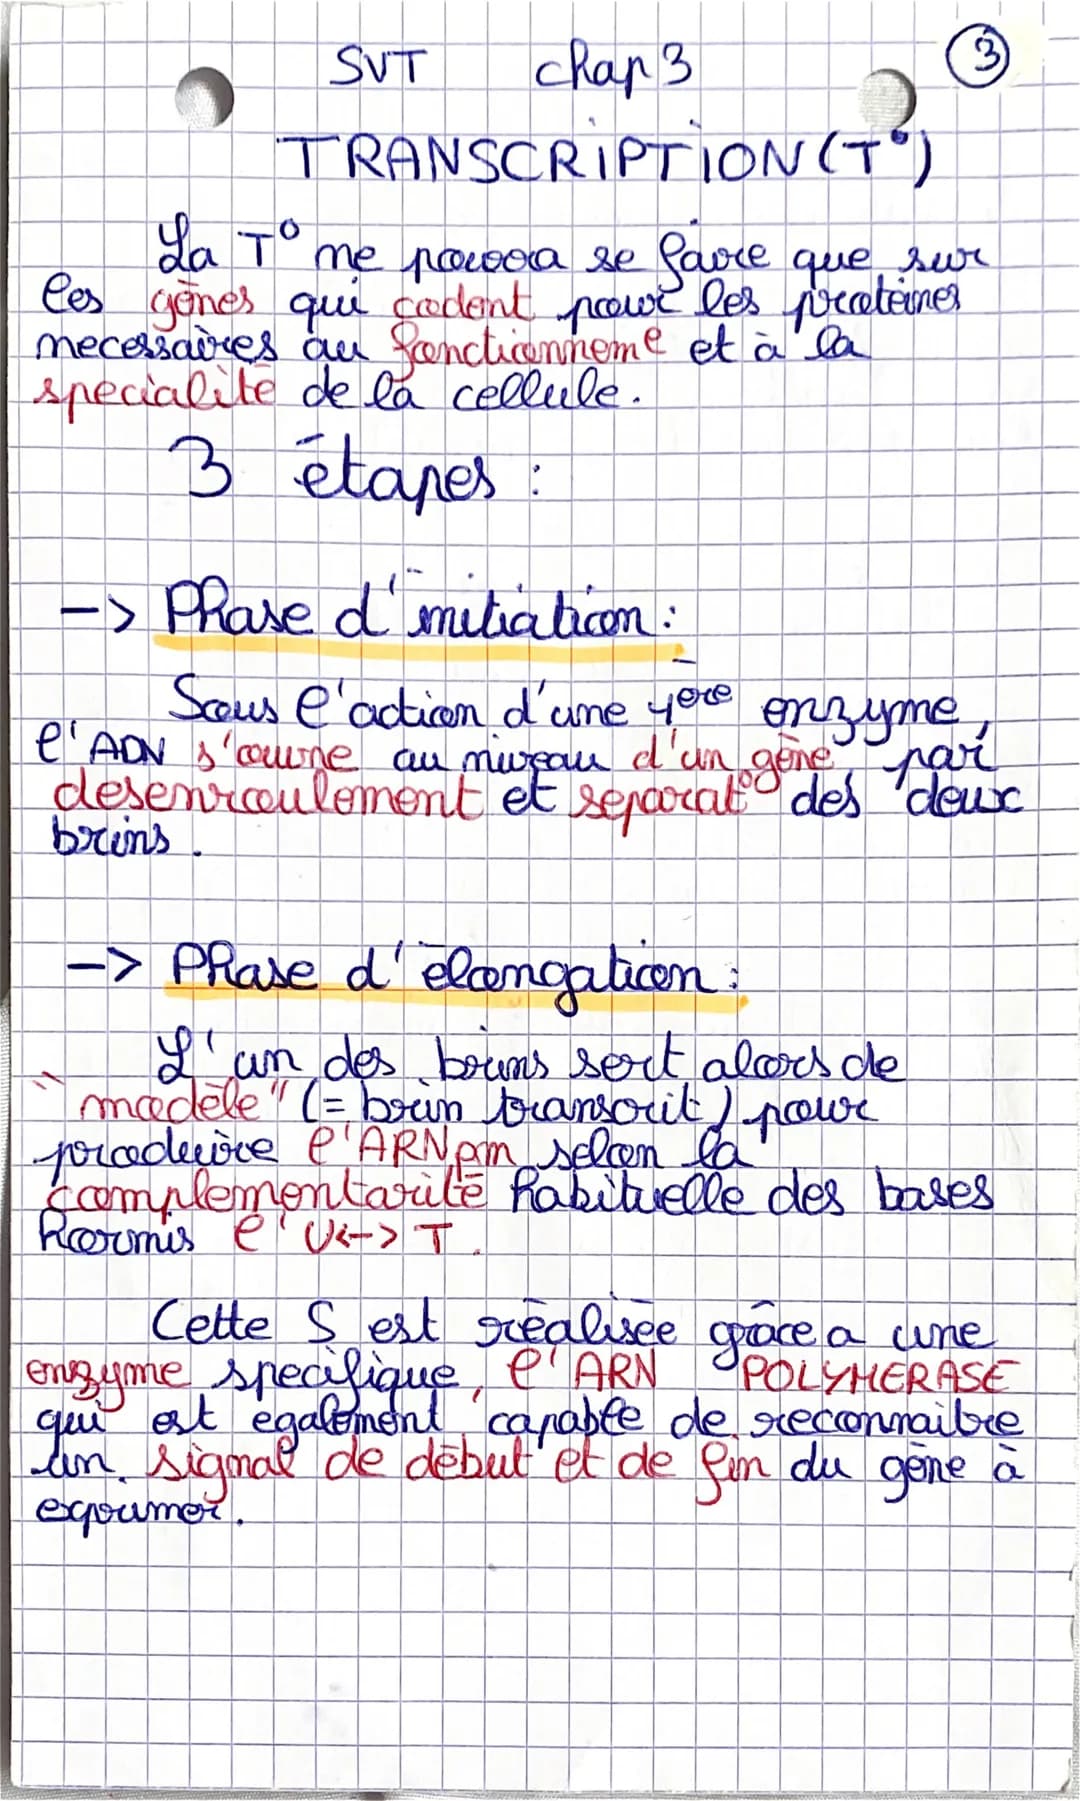 SVT chap 3 3
TRANSCRIPTION (T°)
La T° ne pourra se faire que sur
les gènes qui codent pour les proteines
necessaires au fonctionneme et à la
specialité de la cellule.
3 étapes :
-> Phase d'initiation :
Sous l'action d'une 1ere enzyme,
l'ADN s'ouvre au niveau d'un gène par
desenroulement et separat° des deux
brins.
-> Phase d'élongation :
L'un des brins sert alors de
"modèle" (= brin transcrit) pour
produire l'ARNpm selon la
complementarité habituelle des bases
hormis l'U<-> T.
Cette S est réalisée grâce a une
enzyme specifique, l'ARN POLYMERASE
qui est egalement capable de reconnaitre
un signal de début et de fin du gène à
exprimer.